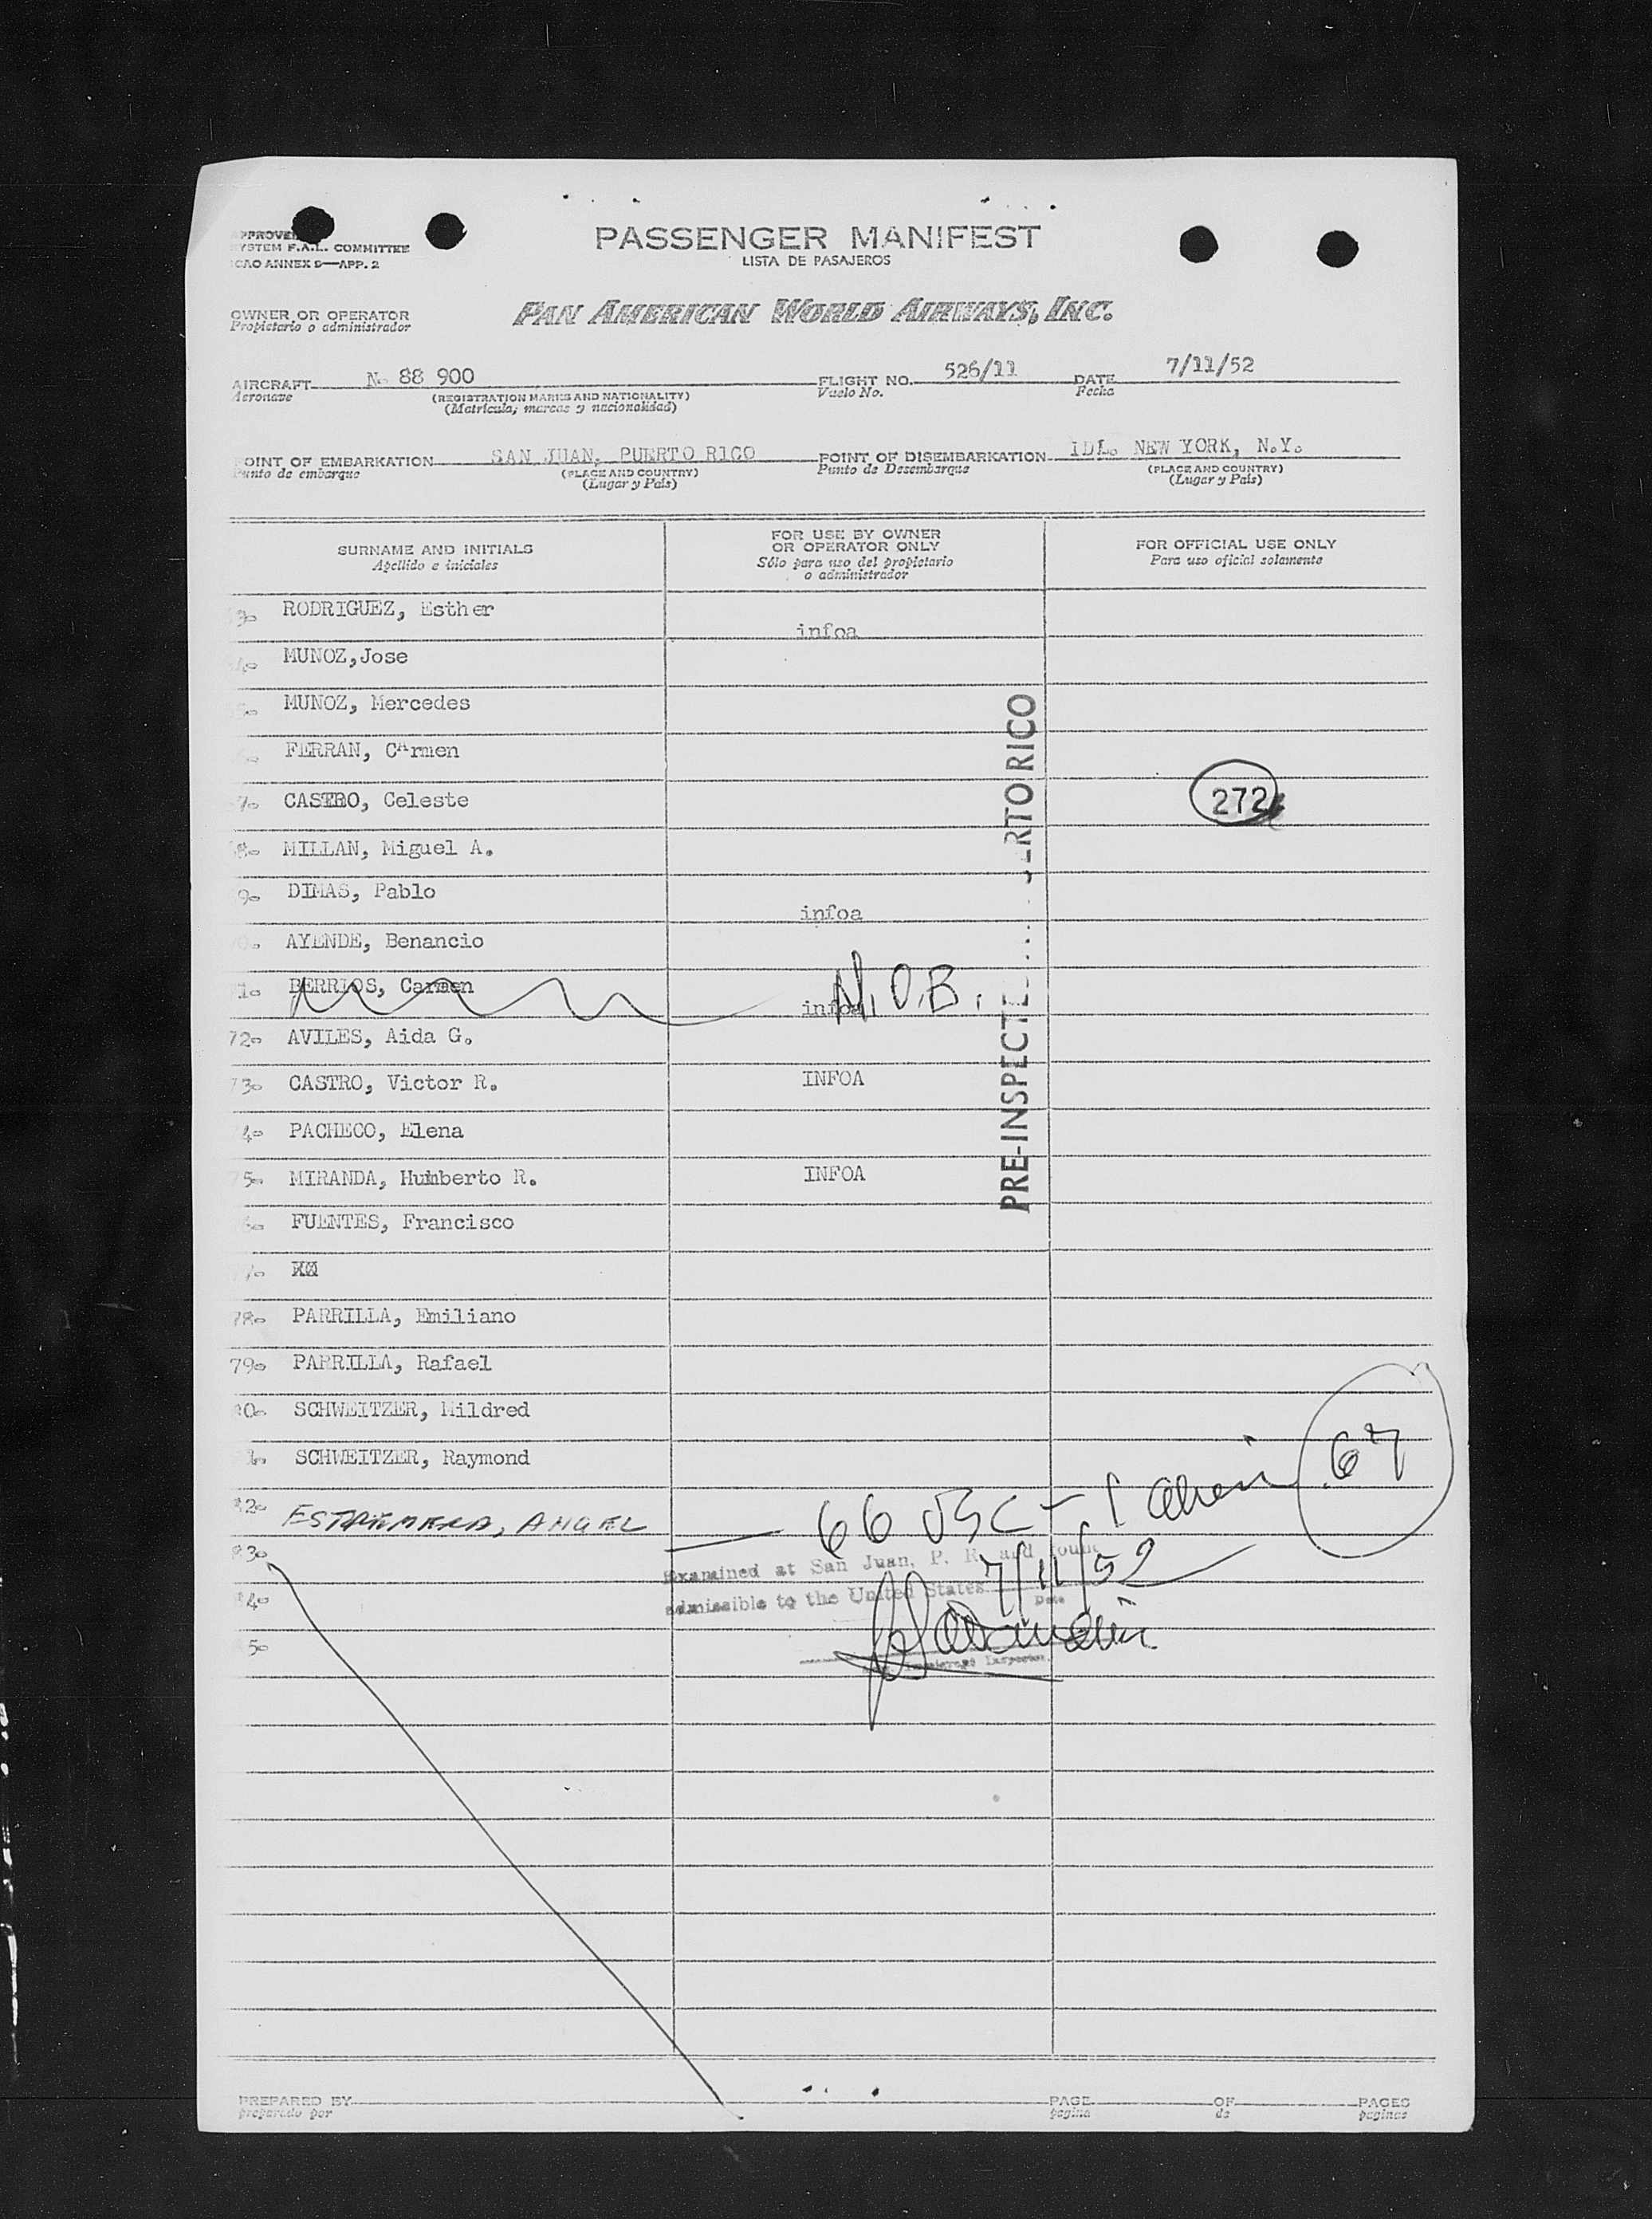 PASSENGER MANIFEST
LISTA DE PASAJEROS
APPROVED
SYSTEM F.A.L. COMMITTEE
ICAO ANNEX 9—APP. 2
OWNER OR OPERATOR
Propietario o administrador
PAN AMERICAN WORLD AIRWAYS, INC.
AIRCRAFT N. 88 900 FLIGHT NO. 526/11 DATE 7/11/52
Aeronave (REGISTRATION MARKS AND NATIONALITY) Vuelo No. Fecha
(Matrícula, marcas y nacionalidad)
POINT OF EMBARKATION SAN JUAN, PUERTO RICO POINT OF DISEMBARKATION IDL. NEW YORK, N.Y.
Punto de embarque (PLACE AND COUNTRY) Punto de Desembarque (PLACE AND COUNTRY)
(Lugar y País) (Lugar y País)
SURNAME AND INITIALS
Apellido e iniciales
FOR USE BY OWNER
OR OPERATOR ONLY
Sólo para uso del propietario
o administrador
FOR OFFICIAL USE ONLY
Para uso oficial solamente
3. RODRIGUEZ, Esther infoa
4. MUNOZ,Jose
5. MUNOZ, Mercedes
FERRAN, CArmen
7. CASTRO, Celeste 272
8. MILLAN, Miguel A.
9. DIMAS, Pablo infoa
0. AYENDE, Benancio
1. BERRIOS, Carmen infoa N.O.B.
72. AVILES, Aida G.
73. CASTRO, Victor R. INFOA
4. PACHECO, Elena
5. MIRANDA, Humberto R. INFOA
FUENTES, Francisco
7. XX
78. PARRILLA, Emiliano
79. PARRILLA, Rafael
80. SCHWEITZER, Mildred
1. SCHWEITZER, Raymond
82. ESTREMERA, ANGEL — 66 USC - 1 alien 67
83.
4.
5.
PRE-INSPECTE RTO RICO
Examined at San Juan, P. R. and found
admissible to the United States 7/11/52
Date
Immigrant Inspector
PREPARED BY PAGE OF PAGES
preparado por página de páginas